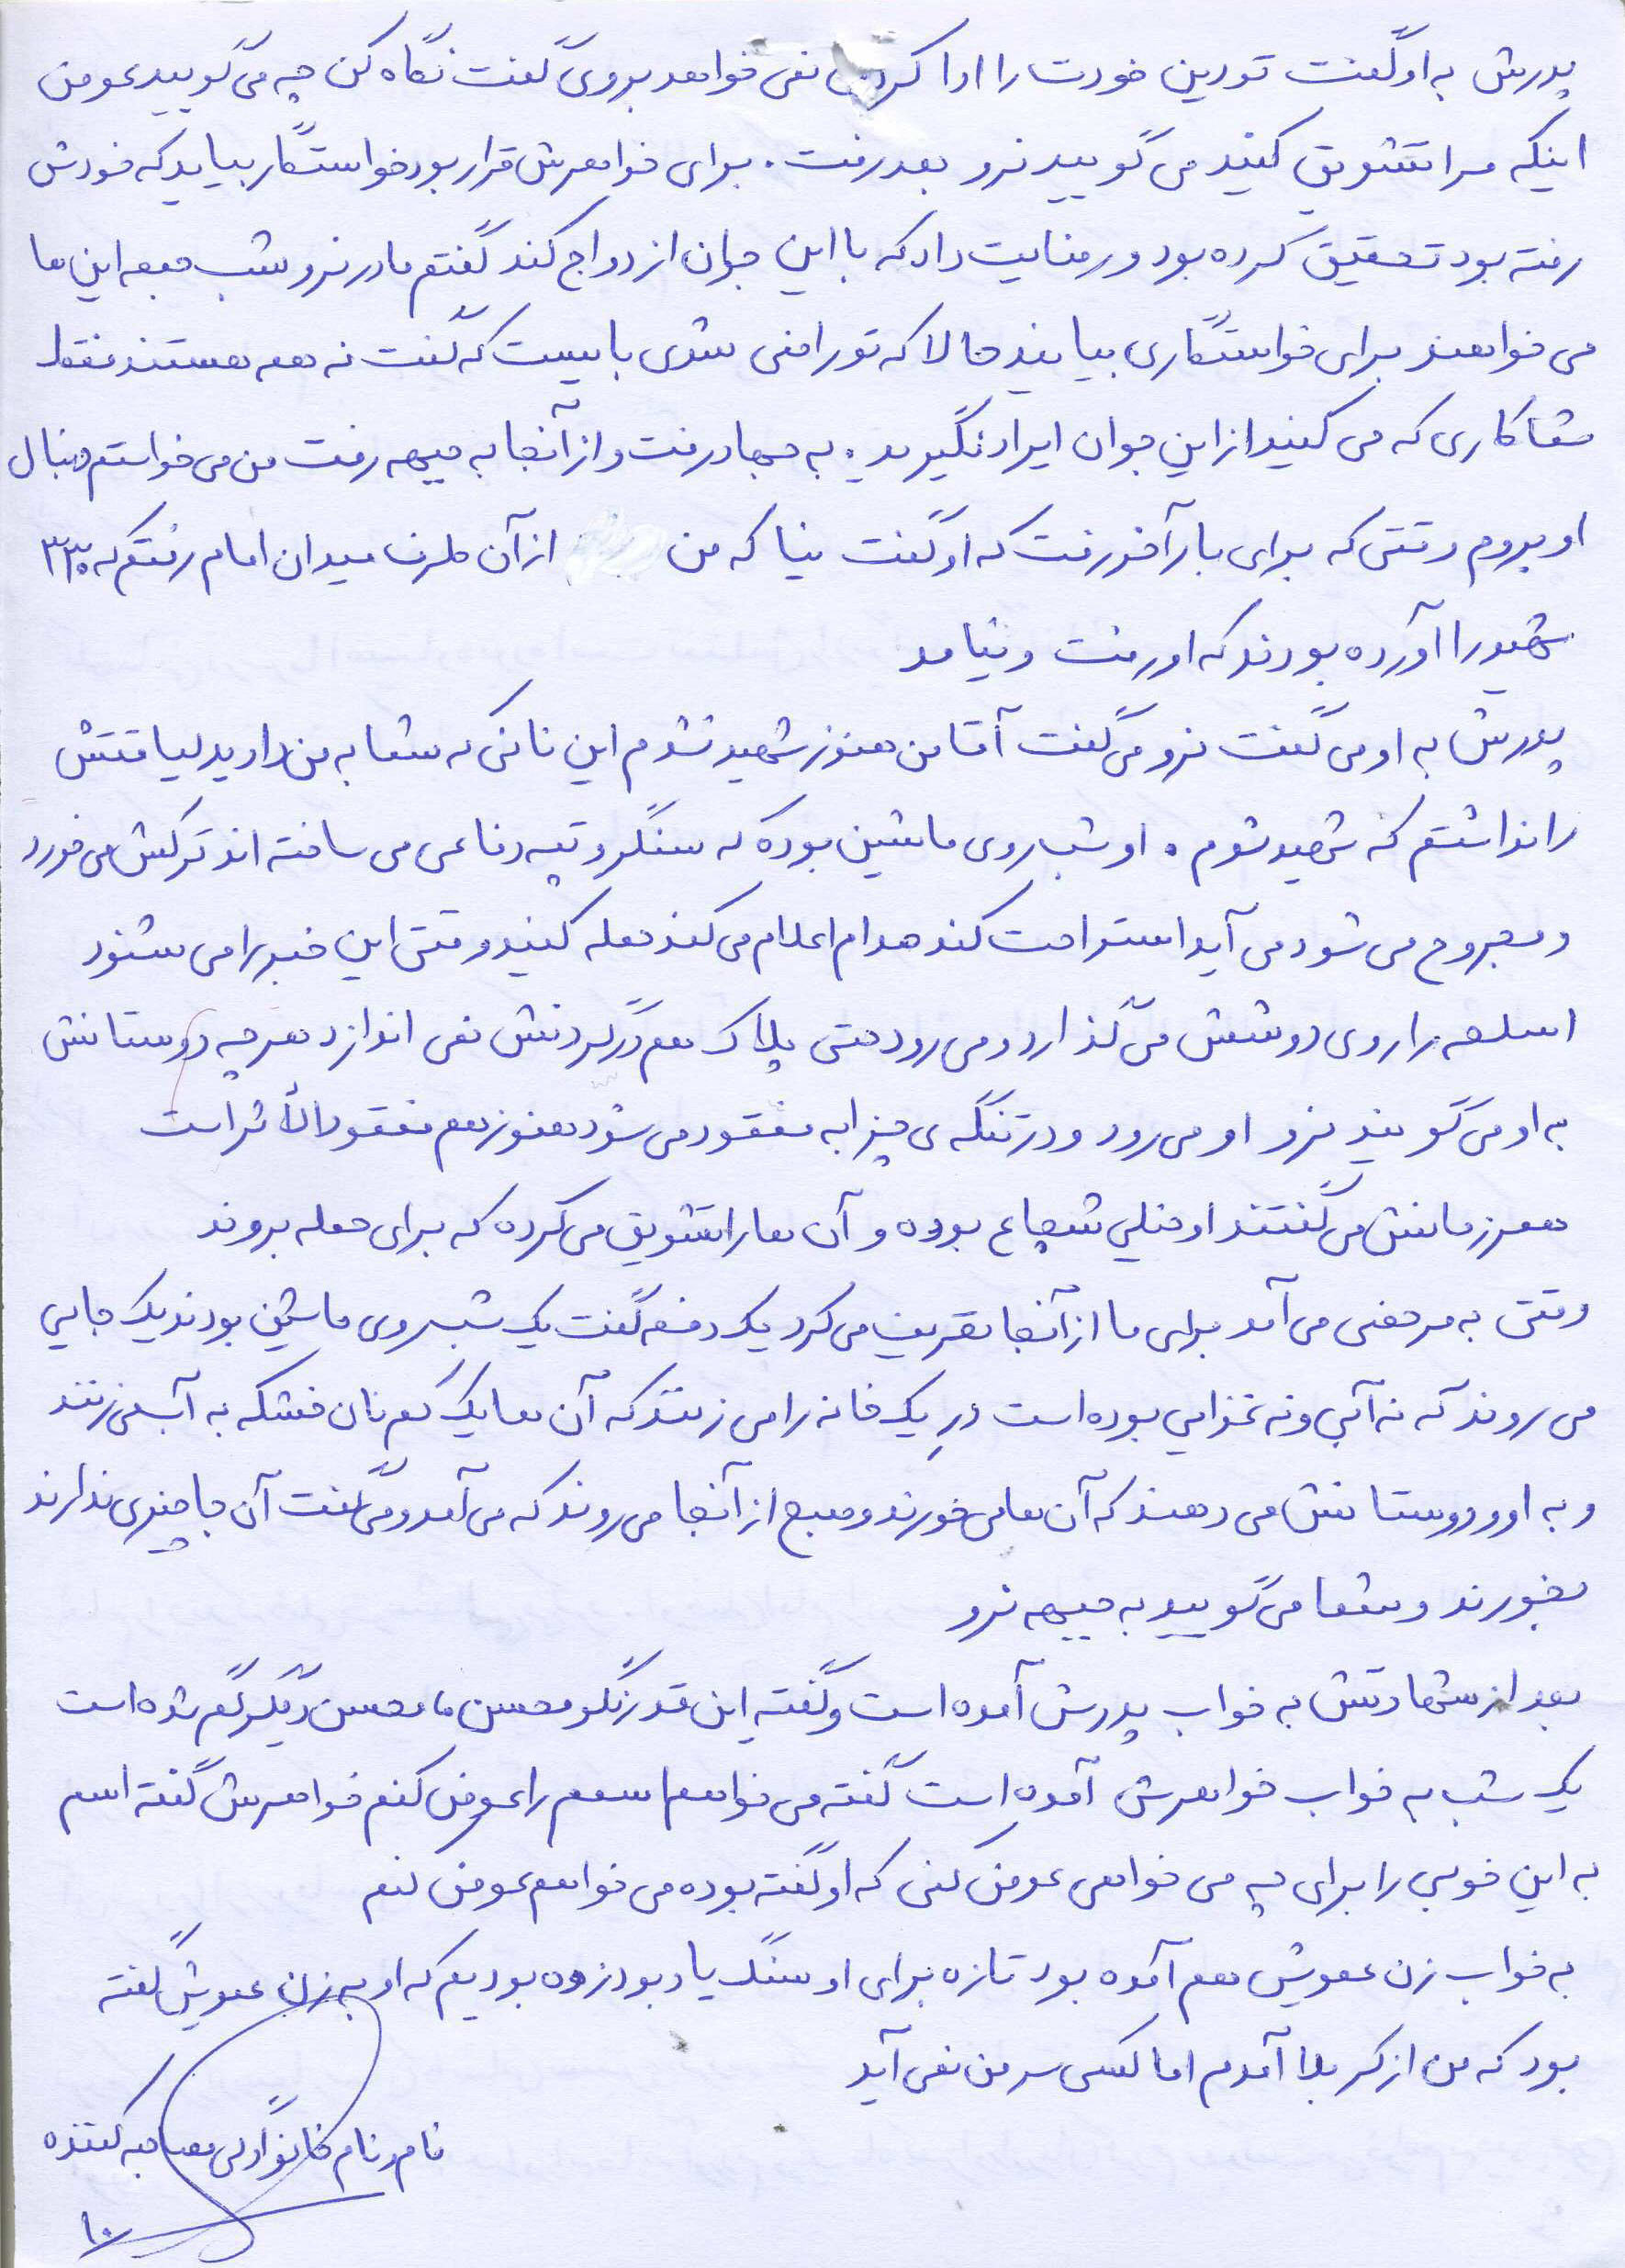 پدرش به او گفت تو دین خودت را ادا کردی نمی خواهد بروی گفت نگاه کن چه می گویید عوض
اینکه مرا تشویق کنید می گویید نرو بعد رفت. برای خواهرش قرار بود خواستگار بیاید که خودش
رفته بود تحقیق کرده بود و رضایت داد که با این جوان ازدواج کند گفتم مادر نرو شب جمعه این ها
می خواهند برای خواستگاری بیایند حالا که تو راضی شدی بایست که گفت نه همه هستند فقط
شما کاری که می کنید از این جوان ایراد نگیرید. به جهاد رفت و از آنجا به جبهه رفت من می خواستم دنبال
او بروم وقتی که برای بار آخر رفت که او گفت نیا که من از آن طرف میدان امام رفتم که ۳۳۰
شهید را آورده بودند که او رفت و نیامد
پدرش به او می گفت نرو می گفت آقا من هنوز شهید نشدم این نانی که شما به من دادید لیاقتش
را نداشتم که شهید شوم. او شب روی ماشین بوده که سنگر و تپه دفاعی می ساخته اند ترکش می خورد
و مجروح می شود می آید استراحت کند صدام اعلام می کند حمله کنید وقتی این خبر را می شنود
اسلحه را روی دوشش می گذارد و می رود حتی پلاک هم در گردنش نمی اندازد هر چه دوستانش
به او می گویند نرو او می رود و در تنگه ی چزابه مفقود می شود هنوز هم مفقودالأثر است
همرزمانش می گفتند او خیلی شجاع بوده و آن ها را تشویق می کرده که برای حمله بروند
وقتی به مرخصی می آمد برای ما از آنجا تعریف می کرد یک دفعه گفت یک شب روی ماشین بودند یک جایی
می روند که نه آبی و نه غذایی بوده است درِ یک خانه را می زنند که آن ها یک کم نان خشکه به آب می زنند
و به او و دوستانش می دهند که آن ها می خورند و صبح از آنجا می روند که می آمد و می گفت آن جا چیزی ندارند
بخورند و شما می گویید به جبهه نرو
بعد از شهادتش به خواب پدرش آمده است و گفته این قدر نگو محسن ما محسن دیگر گم شده است
یک شب به خواب خواهرش آمده است گفته می خواهم اسمم را عوض کنم خواهرش گفته اسم
به این خوبی را برای چه می خواهی عوض کنی که او گفته بوده می خواهم عوض کنم
به خواب زن عمویش هم آمده بود تازه برای او سنگ یادبود زده بودیم که او به زن عمویش گفته
بود که من از کربلا آمدم اما کسی سر من نمی آید
نام و نام خانوادگی مصاحبه کننده
۱۰